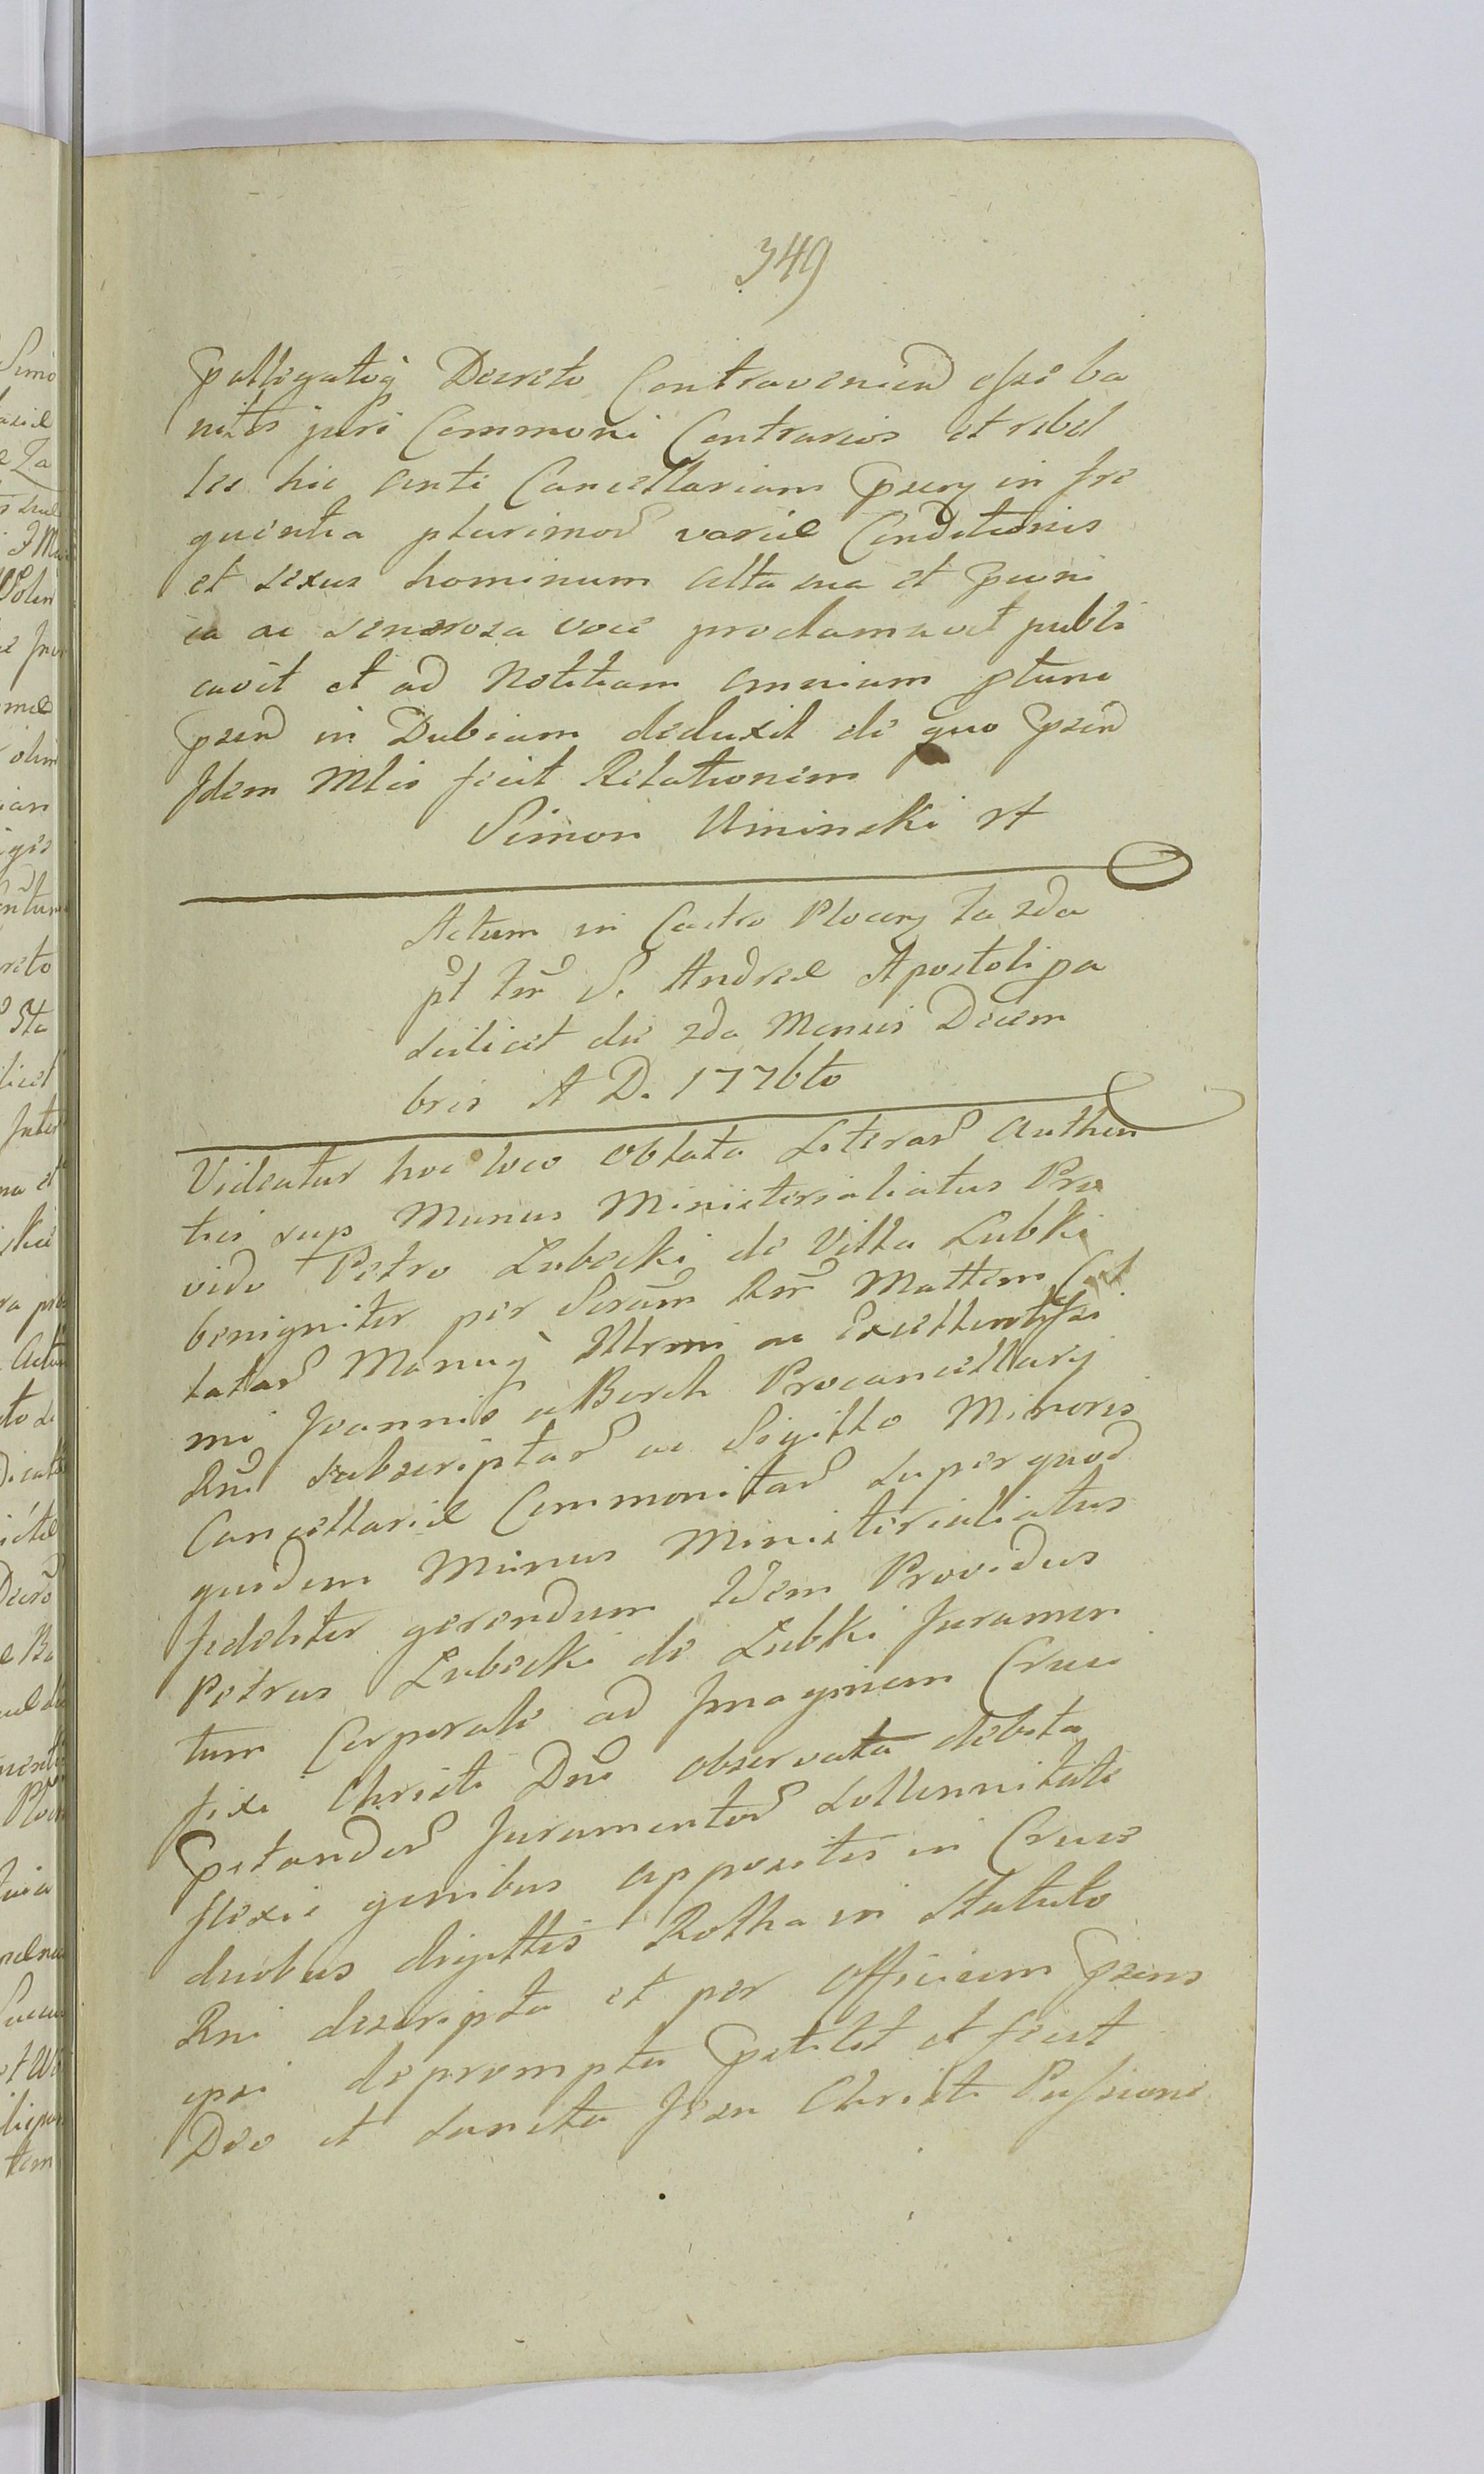 349
pallegatoq Decreto Contravenien esse ba
nitos juri Communi Contrarios et rebel
les hic ante Cancellariam psen in fre
quentia plurimor variæ Conditionis
et sexus hominum alta sua et pcuni
ca ac senorosa voce proclamavit publi
cavit et ad Notitiam omnium ptune
psen in Dubium deduxit de quo psen
Idem Mlis fecit Relationem
Simon Uminski
Actum in Castro Plocen fa 2da
pt fm S. Andreæ Apostoli pa
scilicet die 2da Mensis Decem
bris A D. 1776to
Videatur hoc loco Oblata Literar Authen
tice sup Munus Ministerialiatus Pro
vido Petro Lubecki de Villa Lubki
benigniter per Serum Rm Mattem Col
latar Manuq Illrmi ac Excellentissi
mi Joannis a Borch Procancellarij
Rni subscriptar ac Sigillo Minoris
Cancellariæ Communitar super quod
quidem Munus Ministerialiatus
fideliter gerendum Idem Providus
Petrus Lubecki de Lubki Juramen
tum Corporale ad Imaginem Cruci
fixi Christi Dni observata debita
pstandor Juramentor sollennitate
flexis genibus appositis in Cruce
duobus digittis Rotha in Statuto
Rni descripta et per Officium psens
ipsi deprompta pstitit et fecit
Deo et sancta Jesu Christi Passione